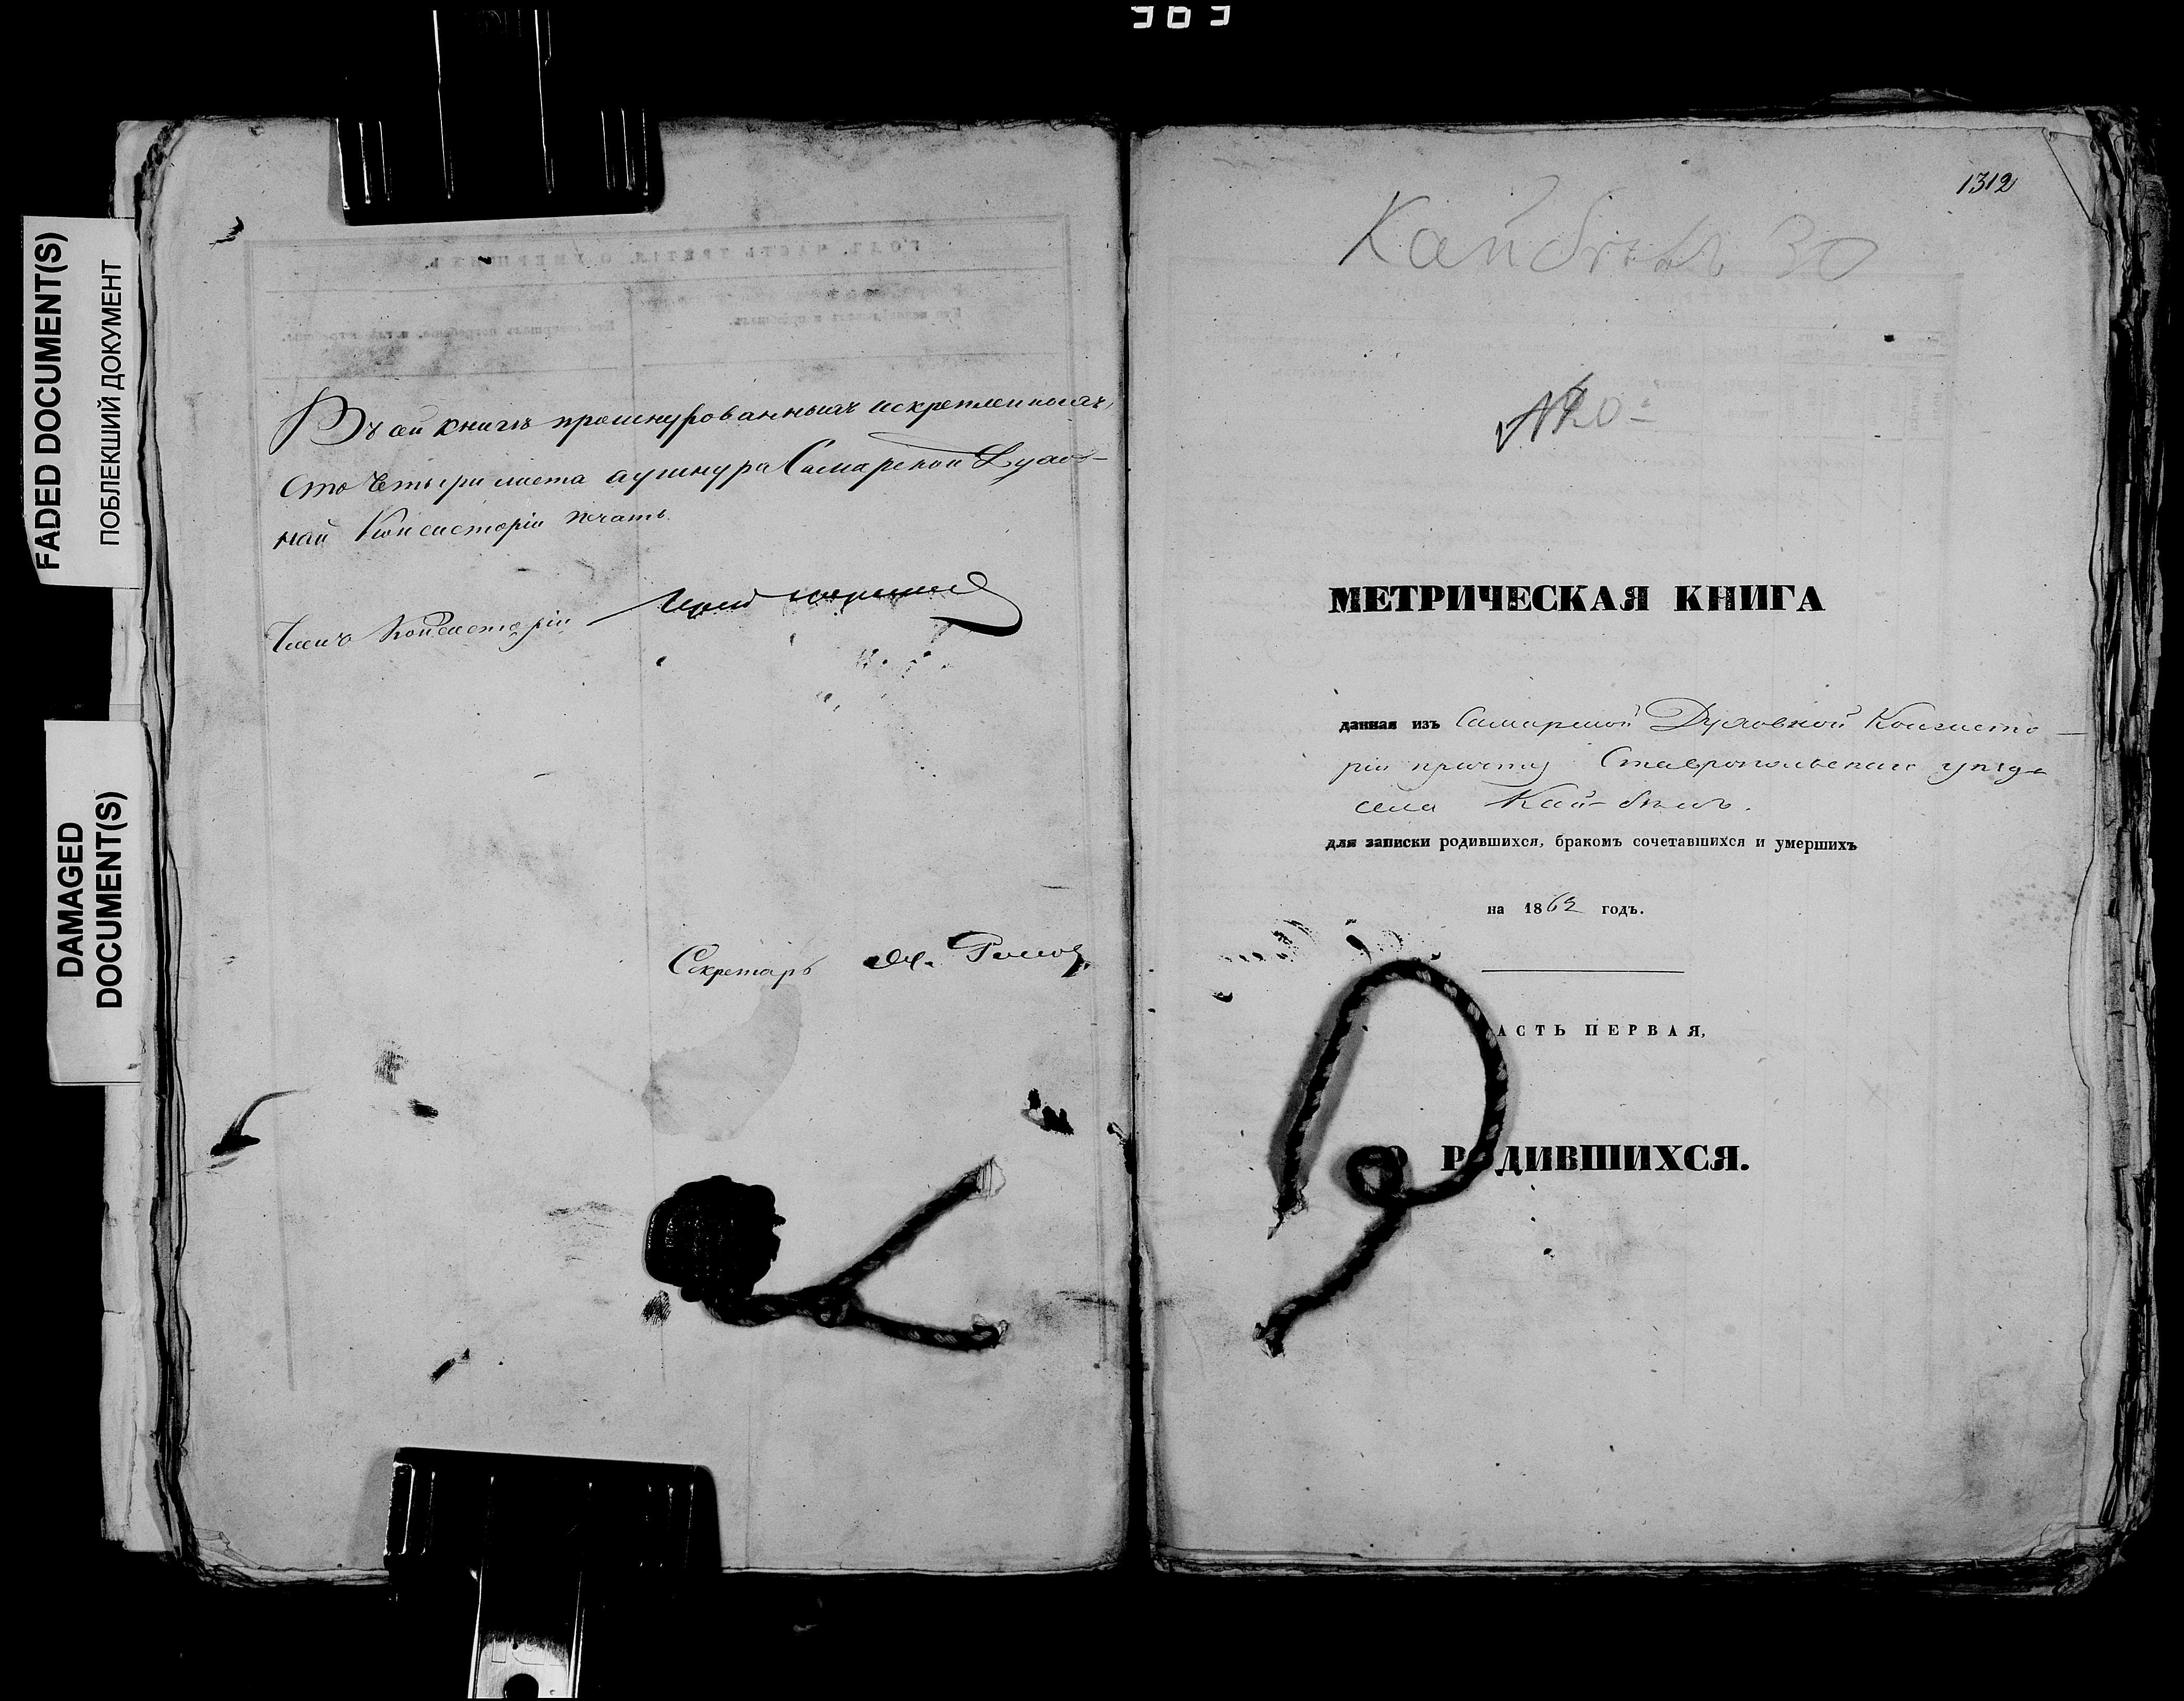 FADED DOCUMENT(S)
ПОБЛЕКШИЙ ДОКУМЕНТ
DAMAGED
DOCUMENT(S)
Въ сей книгѣ прошнурованныхъ искрепленныхъ
сто четыри листа ашнура Самарской Духов-
ной Консисторіи печать.
Членъ Консисторіи
Секретарь
1312
Кайбѣлъ 30
МЕТРИЧЕСКАЯ КНИГА
данная изъ Самарской Духовной Консисто-
ріи причту Ставропольскаго уѣзда
села Кай-бѣлъ.
для записки родившихся, бракомъ сочетавшихся и умершихъ
на 1862 годъ.
АСТЬ ПЕРВАЯ,
О РОДИВШИХСЯ.